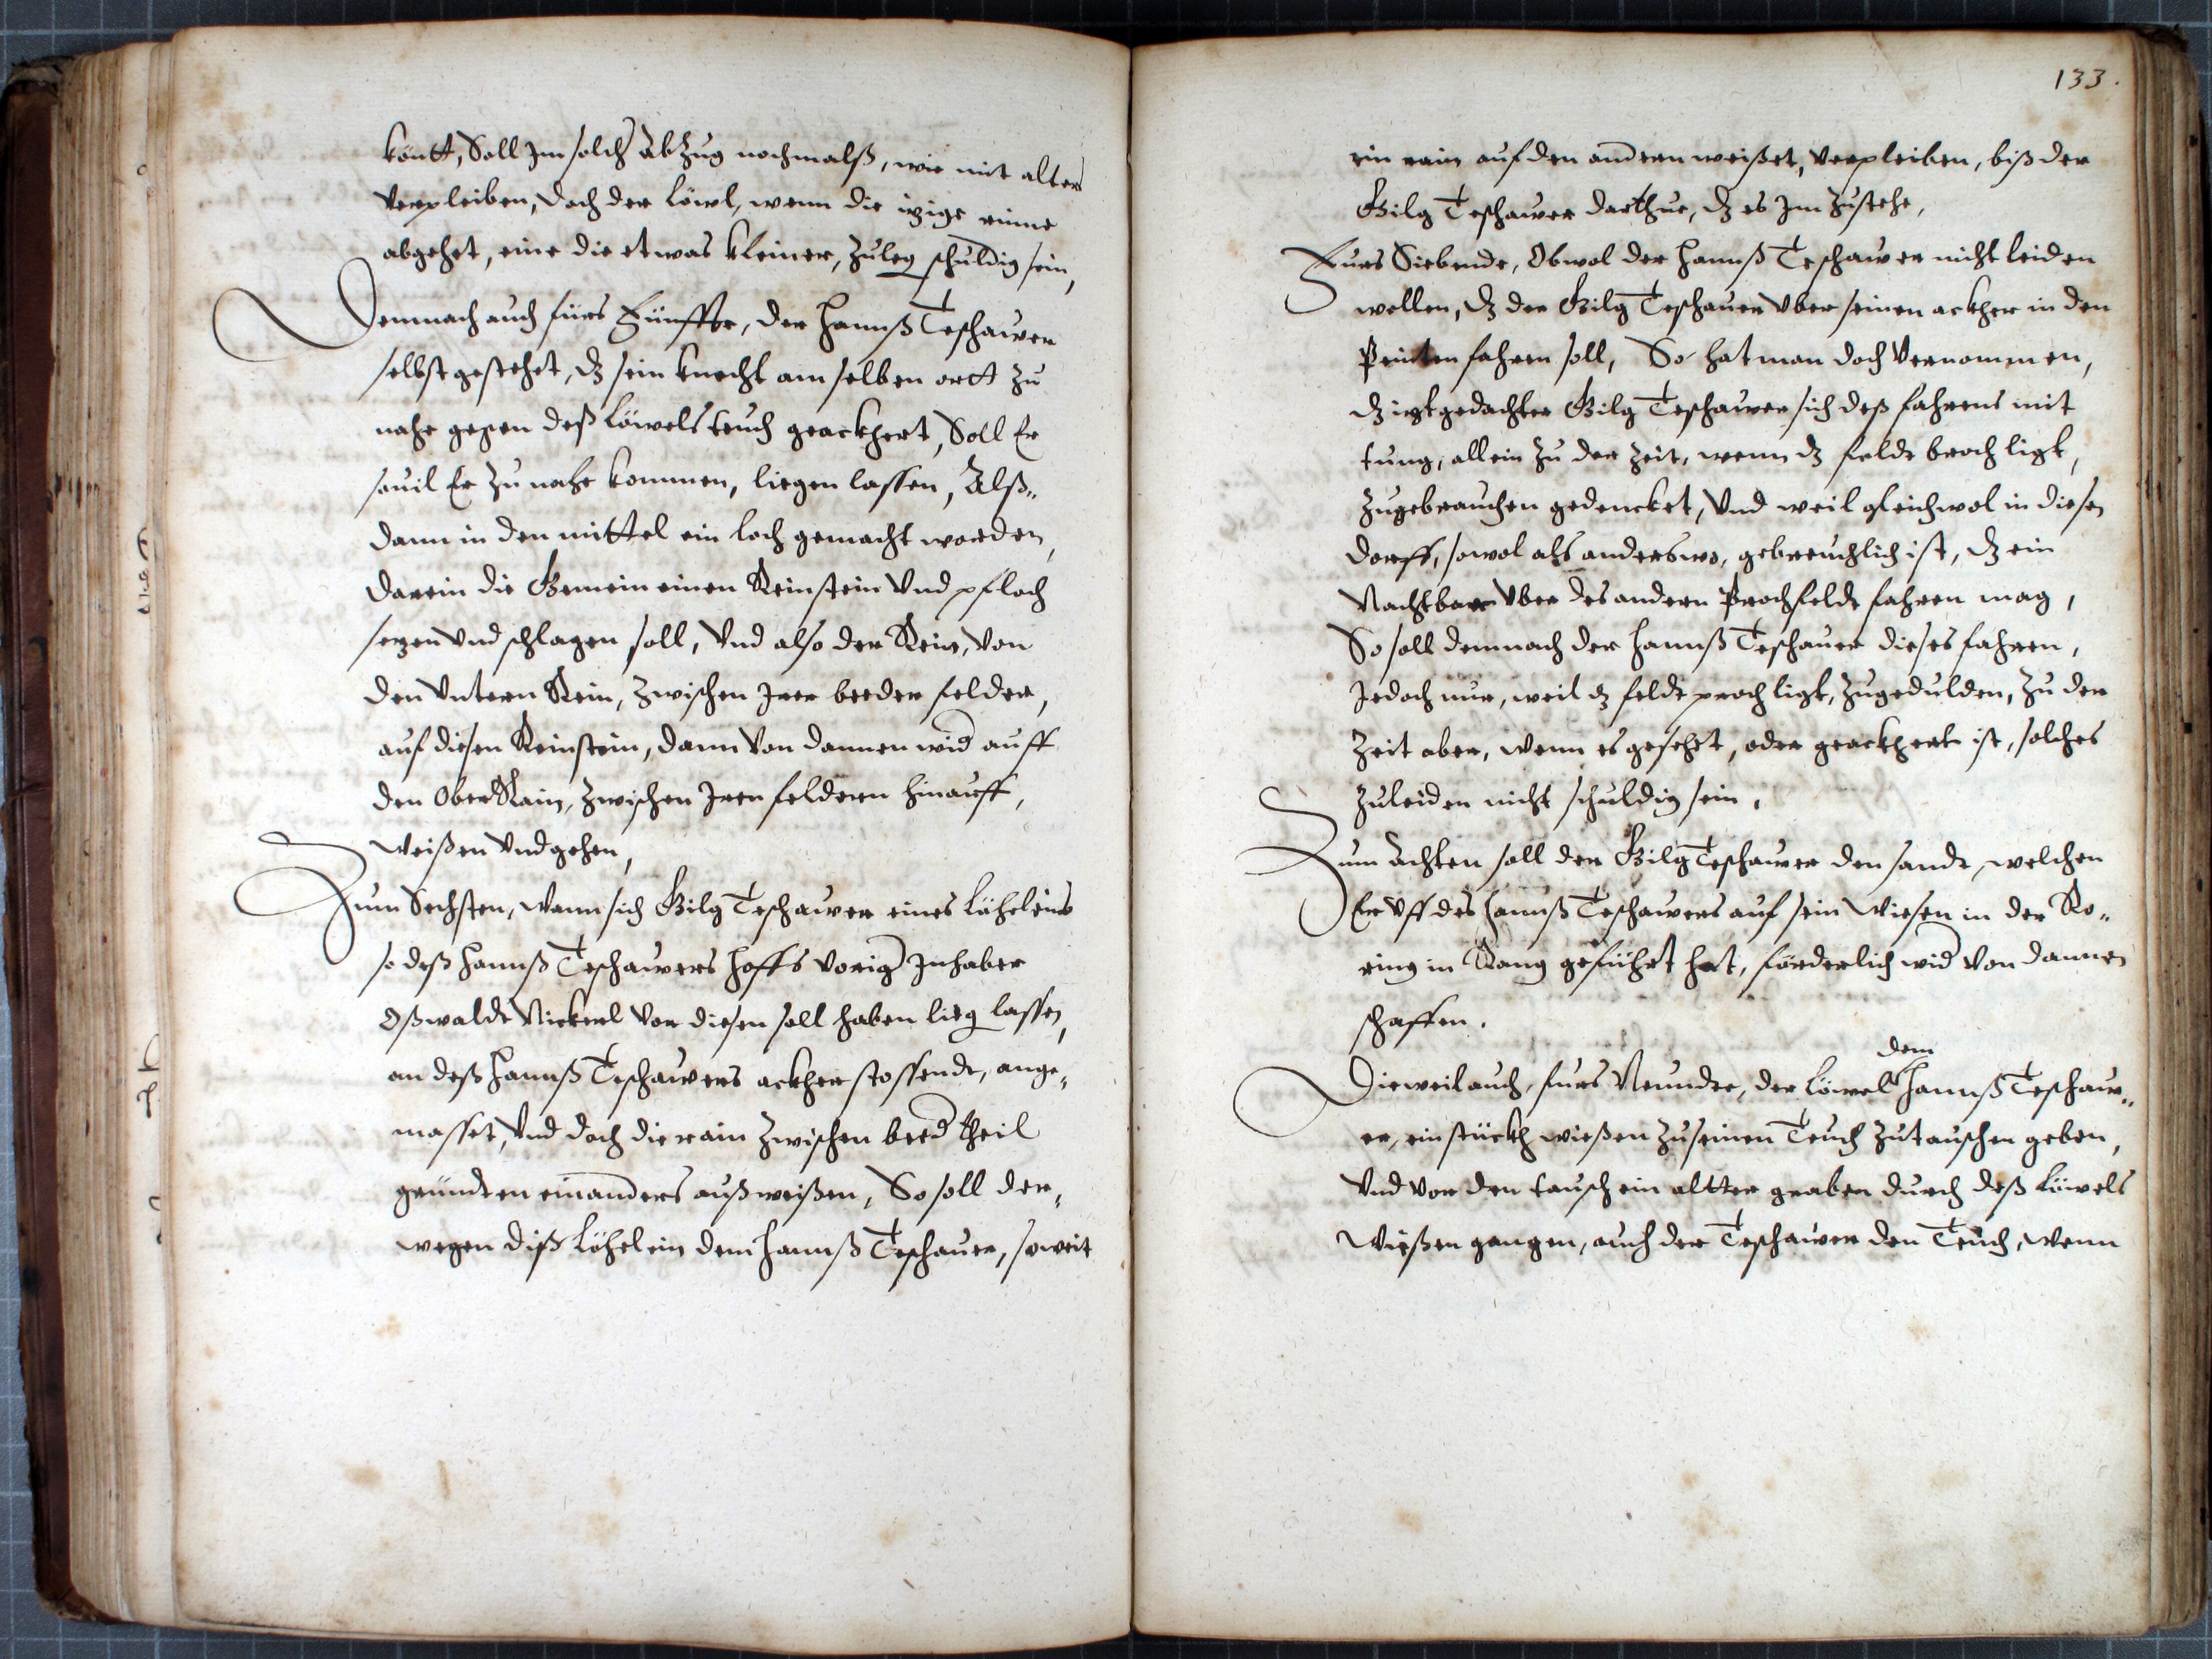 köntt, Soll Im solch Abzug nochmalß, wie mit alters
verpleiben, doch der Löwl, wenn die izige rinne
abgehet, eine die etwas kleiner, zuleg schuldig sein,
Demnach auch fürs Fünffte, der Hannß Teschawer
selbst gestehet, dz sein knecht am selben ortt zu
nahe gegen deß Löwels teuch geackhert, Soll Er
souil Er zu nahe kommen, liegen lassen, Alß„
dann in den mittel ein loch gemacht worden,
darein die Gemein einen Reinstein vnd pfloch
sezen vnd schlagen soll, vnd also der Rein, von
den vntern Rein, zwischen Irer beeder felder,
auf diesen Reinstein, dann von dannen wid auff
den Ober Rain, zwischen Iren feldern hinauff,
weißen vnd gehen,
Zum Sechsten, wann sich Gilg Teschawer eines Löheleins
so deß Hannß Teschawers hoffs vorig Inhaber
Oßwaldt Nickerl vor diesen soll haben lieg lassen,
an deß Hannß Teschawers ackher stossendt, ange„
masset, vnd doch die rain zwischen beed theil
gründten einanders außweißen, So soll der„
wegen diß Löhelein dem Hannß Teschauer, soweit
133.
ein rain auf den andern weißet, verpleiben, biß der
Gilg Teschawer darthue, dz es Im zustehe,
Furs Siebende, Obwol der Hannß Teschawer nicht leiden
wollen, dz der Gilg Teschauer vber seinen ackher in den
Peinten fahren soll, So hat man doch vernommen,
dz iztgedachter Gilg Teschawer sich deß fahrens mit
tung, allein zu der zeit, wenn dz feldt broch ligt,
zugebrauchen gedencket, vnd weil gleichwol in diesen
dorff, sowol als anderswo, gebreuchlich ist, dz ein
Nachtbar vber des andern Prochfeldt fahren mag,
So soll demnach der Hannß Teschauer dieses fahren,
Jedoch nur, weil dz feldt proch ligt, zugedulden, zu der
zeit aber, wenn es gesehet, oder geackhert ist, solches
zuleiden nicht schuldig sein,
Zum Achten soll der Gilg Teschawer den sandt, welchen
Er vff des Hannß Teschawers auf sein wiesen in der Ro„
ring in Rang geführt hat, förderlich wid von dannen
schaffen.
Dieweil auch, furs Neundte, der Löwel dem Hannß Teschaw„
er, ein stückh wießen zu seinen Teuch zutauschen geben,
vnd vor den tausch ein altter graben durch deß Löwels
wießen gangen, auch der Teschawer den Teuch, wenn